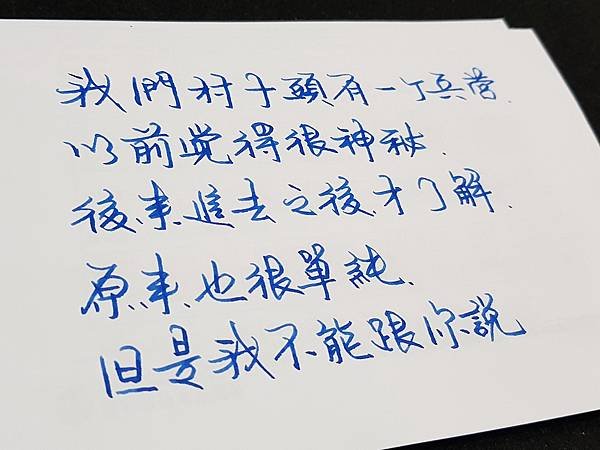 我們村子頭有一丁兵営.
以前覚得很神秘.
後来進去之後才了解.
原来也很單純.
但是我不能跟你說